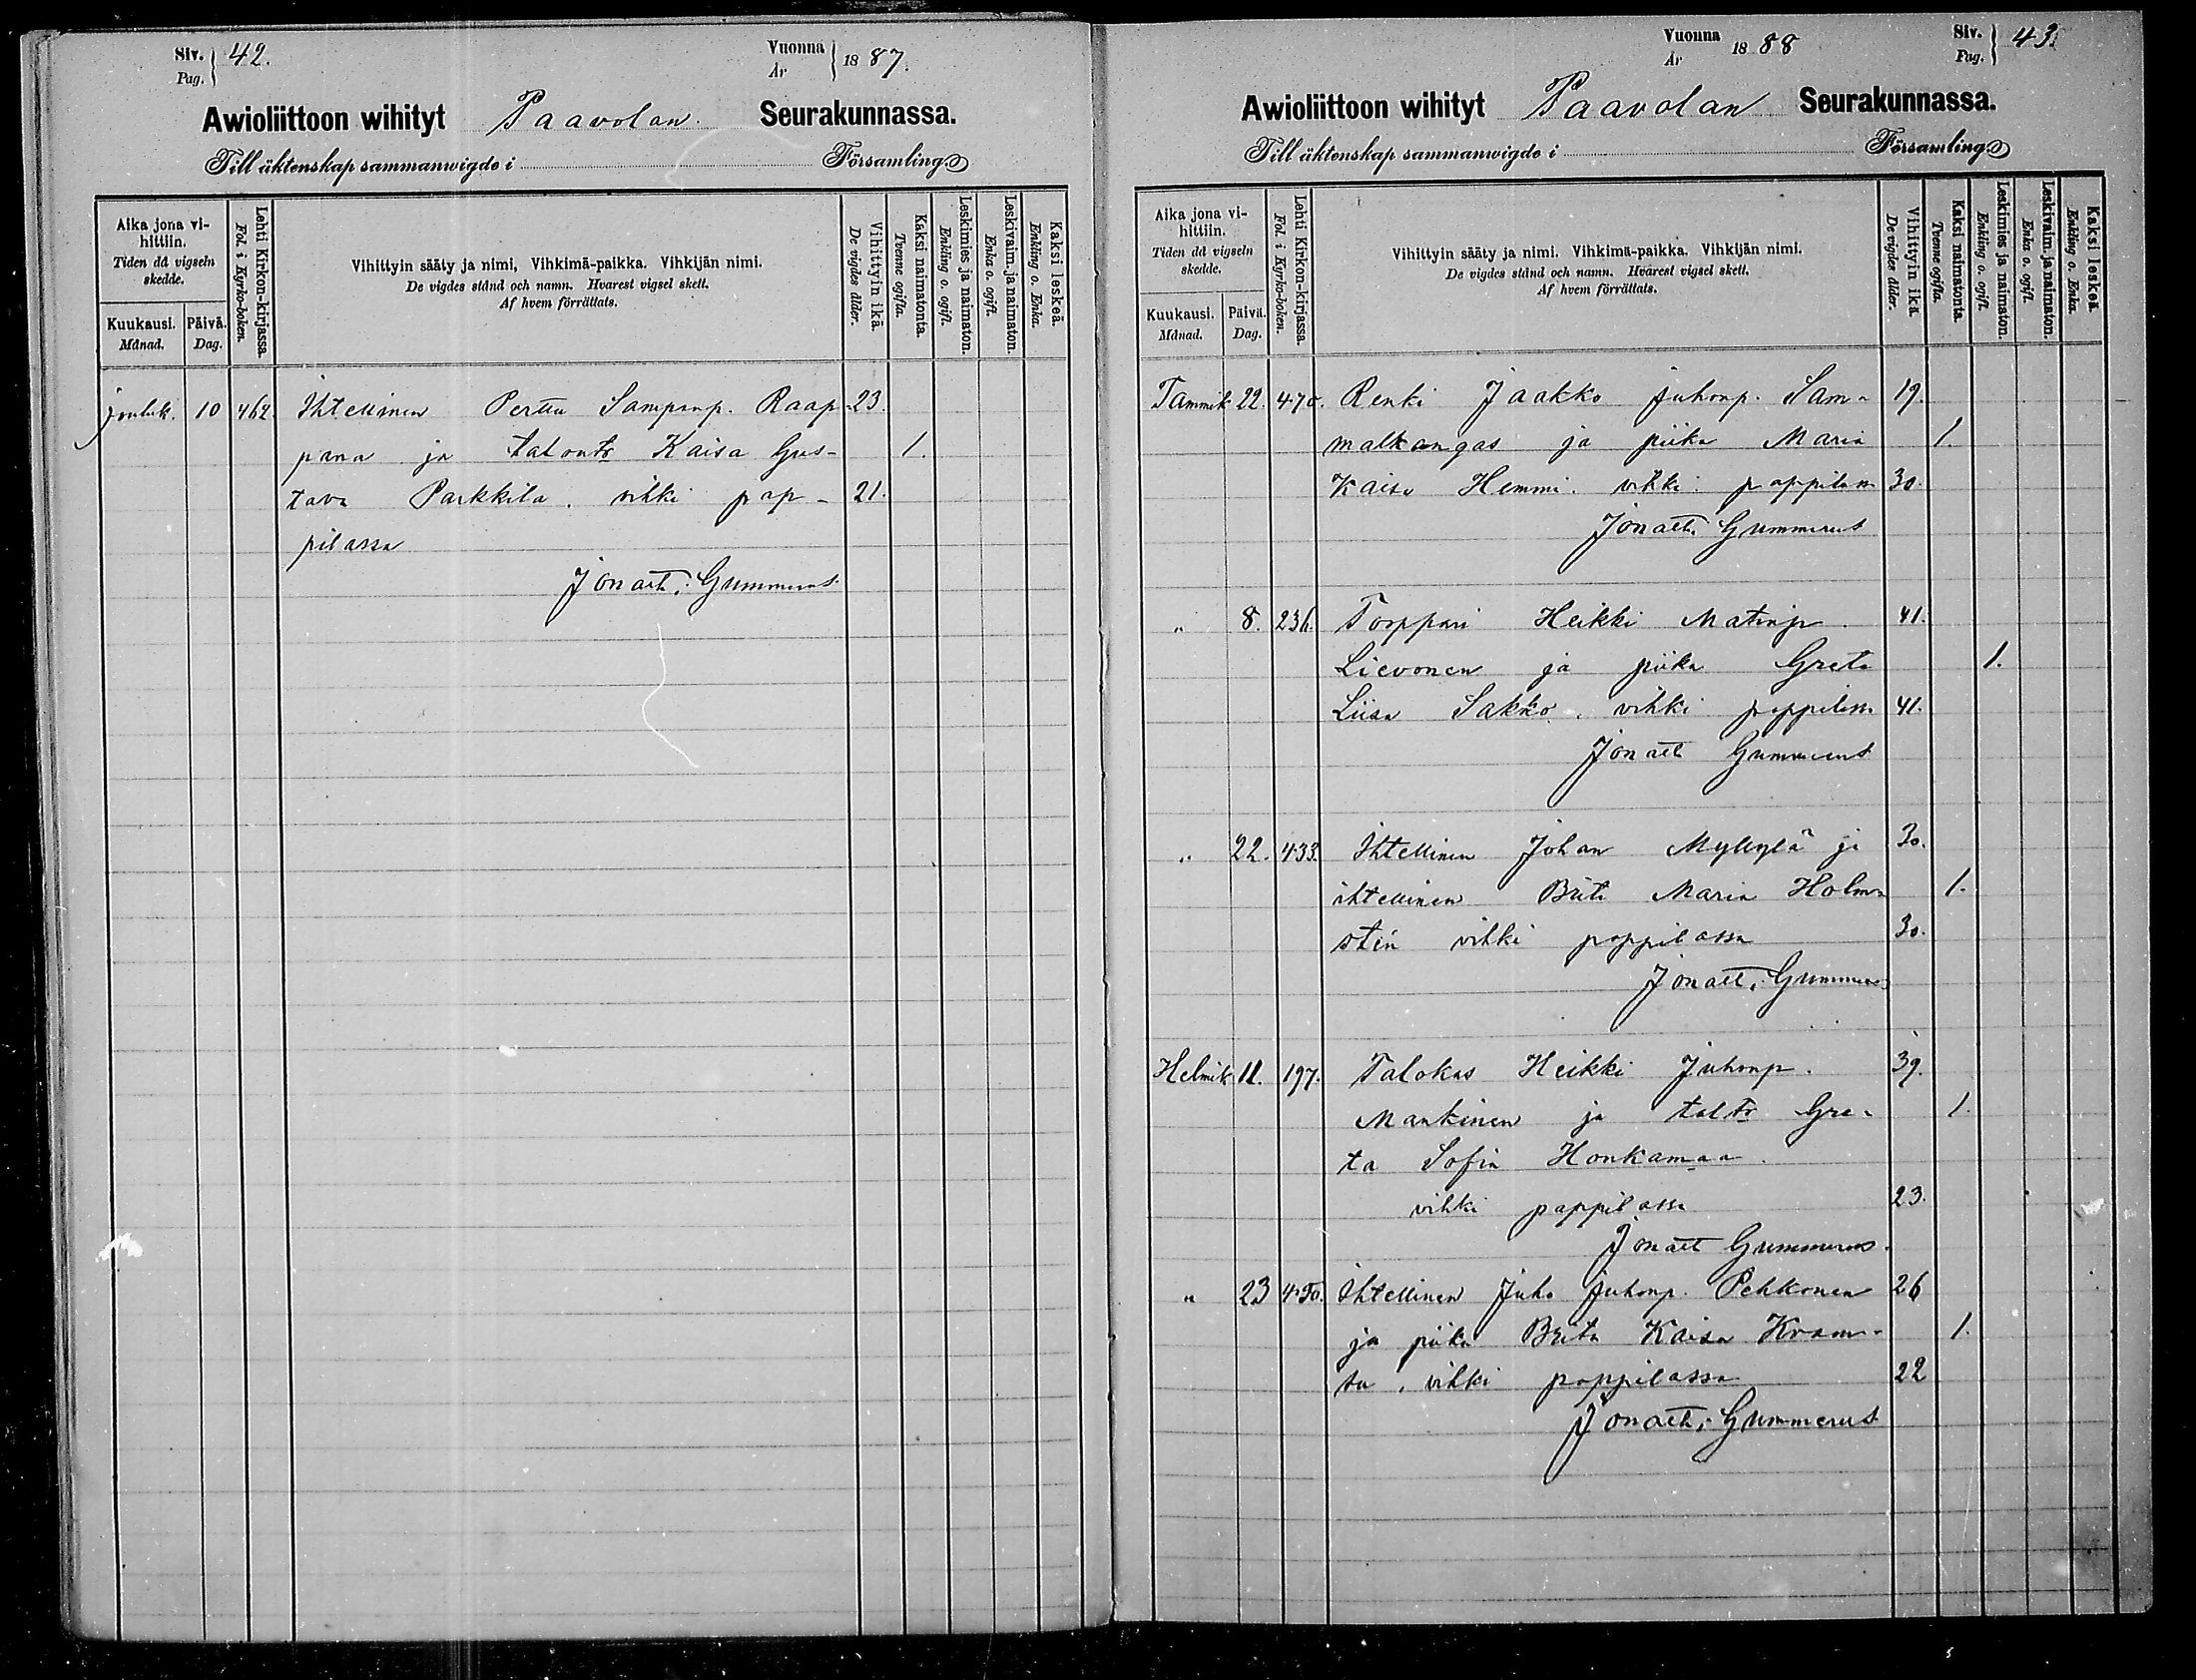 Siv. 42.
Pag.
Vuonna 1887.
År
Awioliittoon wihityt Paavolan Seurakunnassa.
Till äktenskap sammanwigde i Församling
Aika jona vihittiin.
Tiden då vigseln skedde.
Kuukausi. Månad.
Päivä. Dag.
Lehti Kirkon-kirjassa.
Fol. i Kyrko-boken.
Vihittyin sääty ja nimi, Vihkimä-paikka. Vihkijän nimi.
De vigdes stånd och namn. Hvarest vigsel skett.
Af hvem förrättats.
Vihittyin ikä.
De vigdes ålder.
Kaksi naimatonta.
Tvenne ogifta.
Leskimies ja naimaton.
Enkling o. ogift.
Leskivaim. ja naimaton.
Enka o. ogift.
Kaksi leskeä.
Enkling o. Enka.
Jouluk. 10 462. Ihtellinen Perttu Sampanp. Raap- 23.
pana ja talontr Kaisa Gus- 1.
tava Parkkila. vihki pap- 21.
pilassa
Jonath. Gummerus
Vuonna 1888
År
Siv. 43.
Pag.
Awioliittoon wihityt Paavolan Seurakunnassa.
Till äktenskap sammanwigde i Församling
Aika jona vihittiin.
Tiden då vigseln skedde.
Kuukausi. Månad.
Päivä. Dag.
Lehti Kirkon-kirjassa.
Fol. i Kyrko-boken.
Vihittyin sääty ja nimi. Vihkimä-paikka. Vihkijän nimi.
De vigdes stånd och namn. Hvarest vigsel skett.
Af hvem förrättats.
Vihittyin ikä.
De vigdes ålder.
Kaksi naimatonta.
Tvenne ogifta.
Leskimies ja naimaton.
Enkling o. ogift.
Leskivaim. ja naimaton.
Enka o. ogift.
Kaksi leskeä.
Enkling o. Enka.
Tammik 22. 470. Renki Jaakko Juhonp. Sam- 19.
malkangas ja piika Maria 1.
Kaisa Hemmi. vihki pappilass 30.
Jonath. Gummerus
" 8. 236. Torppari Heikki Matinp. 41.
Lievonen ja piika Greta 1.
Liisa Sakko. vihki pappilass 41.
Jonath Gummerus
" 22. 433. Ihtellinen Johan Myllylä ja 30.
ihtellinen Briita Maria Holm- 1.
stin vihki pappilassa 30.
Jonath. Gummerus
Helmik 11. 197. Talokas Heikki Juhonp. 39.
Mankinen ja taltr Gre- 1.
ta Sofia Honkamaa.
vihki pappilassa 23.
Jonath Gummerus.
" 23 450. Ihtellinen Juho Juhonp. Pehkonen 26
ja piika Brita Kaisa Kram- 1.
su, vihki pappilassa 22
Jonath. Gummerus